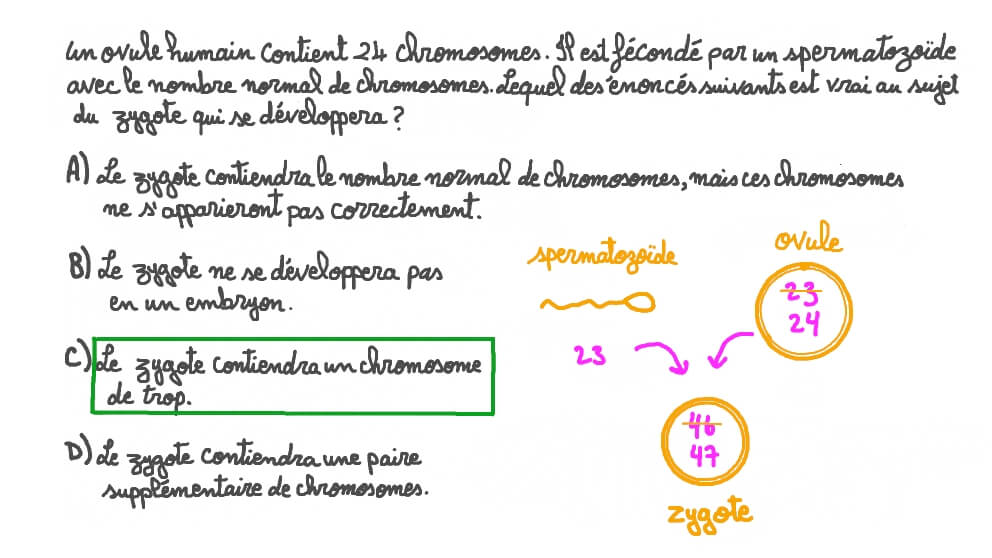 Un ovule humain contient 24 chromosomes. Il est fécondé par un spermatozoïde
avec le nombre normal de chromosomes. Lequel des énoncés suivants est vrai au sujet
du zygote qui se développera ?
A) Le zygote contiendra le nombre normal de chromosomes, mais ces chromosomes
ne s'apparieront pas correctement.
B) Le zygote ne se développera pas
en un embryon.
C) Le zygote contiendra un chromosome
de trop.
D) Le zygote contiendra une paire
supplémentaire de chromosomes.
spermatozoïde
23
ovule
23
24
46
47
zygote